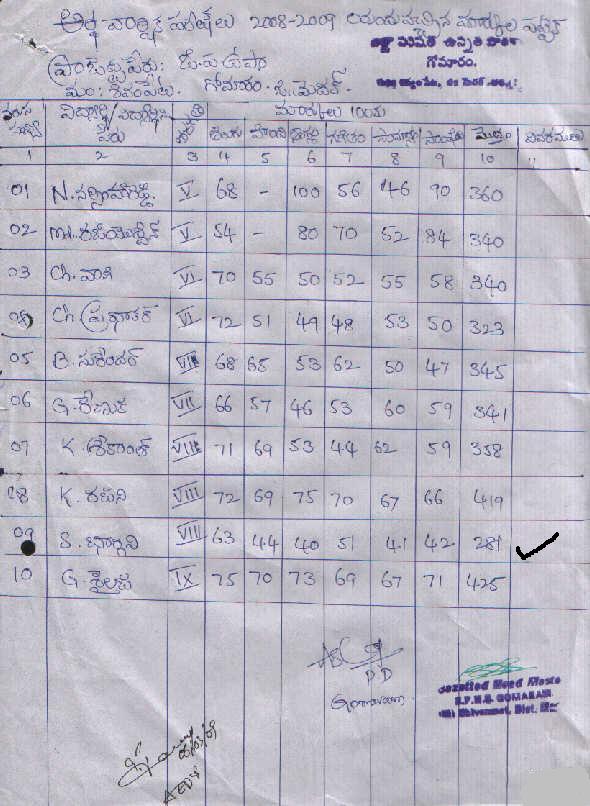 అర్ధ వార్షిక పరీక్షలు 2008-2009 మార్కుల పట్టిక
జిల్లా పరిషత్ ఉన్నత పాఠశాల
గోమారం.
మం: శివంపేట. గోమారం. జి. మెదక్.
వరుస సంఖ్య విద్యార్థి/విద్యార్థిని పేరు తరగతి మార్కులు 100కు
తెలుగు హిందీ ఇంగ్లీ గణితం సామాన్య సాంఘీక మొత్తం వివరములు
1 2 3 4 5 6 7 8 9 10 11
01 V 68 - 100 56 46 90 360
02 Md. V 54 - 80 70 52 84 340
03 Ch. వాణి VI 70 55 50 52 55 58 340
04 Ch. ప్రభాకర్ VI 72 51 49 48 53 50 323
05 B. సురేందర్ VII 68 65 53 62 50 47 345
06 G. రేణుక VII 66 57 46 53 60 59 341
07 K. శ్రీకాంత్ VIII 71 69 53 44 62 59 358
08 K. రజని VIII 72 69 75 70 67 66 419
09 S. VIII 63 44 40 51 41 42 281
10 G. శైలజ IX 75 70 73 69 67 71 425
Gazetted Head Maste
GOMARAM
Shivampet, Dist.